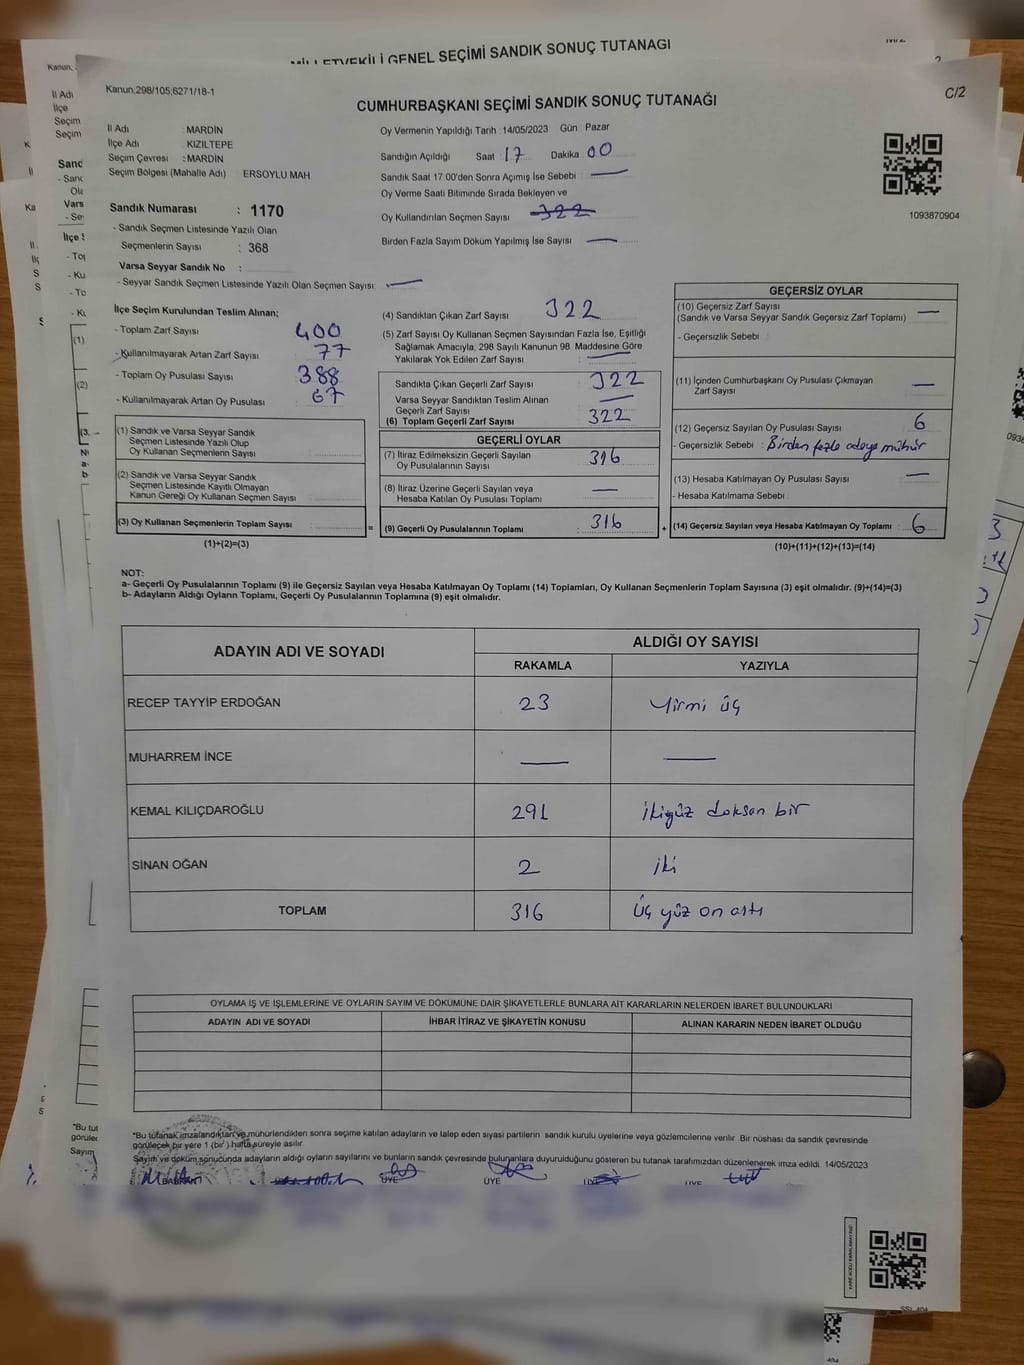 MİLLETVEKİLİ GENEL SEÇİMİ SANDIK SONUÇ TUTANAĞI
Kanun;298/105,6271/18-1
C/2
CUMHURBAŞKANI SEÇİMİ SANDIK SONUÇ TUTANAĞI
İl Adı : MARDİN
İlçe Adı KIZILTEPE
Seçim Çevresi : MARDİN
Seçim Bölgesi (Mahalle Adı) ERSOYLU MAH
Sandık Numarası : 1170
- Sandık Seçmen Listesinde Yazılı Olan
Seçmenlerin Sayısı : 368
Varsa Seyyar Sandık No :
- Seyyar Sandık Seçmen Listesinde Yazılı Olan Seçmen Sayısı: —
Oy Vermenin Yapıldığı Tarih : 14/05/2023 Gün Pazar
Sandığın Açıldığı Saat 17 Dakika 00
Sandık Saat 17:00'den Sonra Açımış İse Sebebi —
Oy Verme Saati Bitiminde Sırada Bekleyen ve
Oy Kullandırılan Seçmen Sayısı 322
Birden Fazla Sayım Döküm Yapılmış İse Sayısı —
1093870904
İlçe Seçim Kurulundan Teslim Alınan;
- Toplam Zarf Sayısı 400
- Kullanılmayarak Artan Zarf Sayısı 77
- Toplam Oy Pusulası Sayısı 388
- Kullanılmayarak Artan Oy Pusulası 67
(1) Sandık ve Varsa Seyyar Sandık
Seçmen Listesinde Yazılı Olup
Oy Kullanan Seçmenlerin Sayısı
(2) Sandık ve Varsa Seyyar Sandık
Seçmen Listesinde Kayıtlı Olmayan
Kanun Gereği Oy Kullanan Seçmen Sayısı
(3) Oy Kullanan Seçmenlerin Toplam Sayısı
(1)+(2)=(3)
(4) Sandıktan Çıkan Zarf Sayısı 322
(5) Zarf Sayısı Oy Kullanan Seçmen Sayısından Fazla İse, Eşitliği
Sağlamak Amacıyla, 298 Sayılı Kanunun 98. Maddesine Göre
Yakılarak Yok Edilen Zarf Sayısı —
Sandıkta Çıkan Geçerli Zarf Sayısı 322
Varsa Seyyar Sandıktan Teslim Alınan
Geçerli Zarf Sayısı —
(6) Toplam Geçerli Zarf Sayısı 322
GEÇERLİ OYLAR
(7) İtiraz Edilmeksizin Geçerli Sayılan
Oy Pusulalarının Sayısı 316
(8) İtiraz Üzerine Geçerli Sayılan veya
Hesaba Katılan Oy Pusulası Toplamı —
= (9) Geçerli Oy Pusulalarının Toplamı 316
GEÇERSİZ OYLAR
(10) Geçersiz Zarf Sayısı
(Sandık ve Varsa Seyyar Sandık Geçersiz Zarf Toplamı) —
- Geçersizlik Sebebi
(11) İçinden Cumhurbaşkanı Oy Pusulası Çıkmayan
Zarf Sayısı —
(12) Geçersiz Sayılan Oy Pusulası Sayısı 6
- Geçersizlik Sebebi : Birden fazla adaya mühür
(13) Hesaba Katılmayan Oy Pusulası Sayısı —
- Hesaba Katılmama Sebebi
+ (14) Geçersiz Sayılan veya Hesaba Katılmayan Oy Toplamı : 6
(10)+(11)+(12)+(13)=(14)
NOT:
a- Geçerli Oy Pusulalarının Toplamı (9) ile Geçersiz Sayılan veya Hesaba Katılmayan Oy Toplamı (14) Toplamları, Oy Kullanan Seçmenlerin Toplam Sayısına (3) eşit olmalıdır. (9)+(14)=(3)
b- Adayların Aldığı Oyların Toplamı, Geçerli Oy Pusulalarının Toplamına (9) eşit olmalıdır.
ADAYIN ADI VE SOYADI ALDIĞI OY SAYISI
RAKAMLA YAZIYLA
RECEP TAYYİP ERDOĞAN 23 Yirmi üç
MUHARREM İNCE — —
KEMAL KILIÇDAROĞLU 291 ikiyüz doksan bir
SİNAN OĞAN 2 iki
TOPLAM 316 üç yüz on altı
OYLAMA İŞ VE İŞLEMLERİNE VE OYLARIN SAYIM VE DÖKÜMÜNE DAİR ŞİKAYETLERLE BUNLARA AİT KARARLARIN NELERDEN İBARET BULUNDUKLARI
ADAYIN ADI VE SOYADI İHBAR İTİRAZ VE ŞİKAYETİN KONUSU ALINAN KARARIN NEDEN İBARET OLDUĞU
*Bu tutanak imzalandıktan ve mühürlendikten sonra seçime katılan adayların ve talep eden siyasi partilerin sandık kurulu üyelerine veya gözlemcilerine verilir. Bir nüshası da sandık çevresinde
görülecek bir yere 1 (bir) hafta süreyle asılır.
Sayım ve döküm sonucunda adayların aldığı oyların sayılarını ve bunların sandık çevresinde bulunanlara duyurulduğunu gösteren bu tutanak tarafımızdan düzenlenerek imza edildi. 14/05/2023
BAŞKAN ÜYE ÜYE ÜYE ÜYE